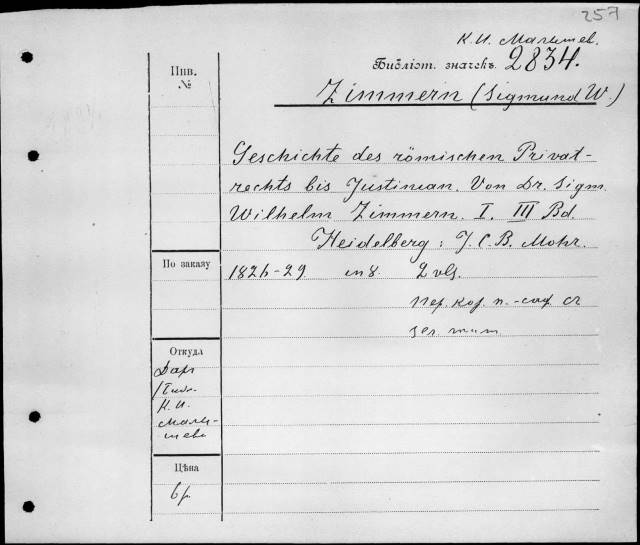 257
К. И. Малышев.
Библіот. значекъ 2834.
Инв.
№
Zimmern (Sigmund W.)
Geschichte des römischen Privat-
rechts bis Justinian. Von Dr. Sigm.
Wilhelm Zimmern. I. III Bd.
Heidelberg: J. C. B. Mohr.
По заказу
1826-29 in 8. 2 vls.
пер. кор. п.-саф. съ
зол. тит.
Откуда
Даръ
Библ.
К. И.
Малы-
шева
Цѣна
6 р.